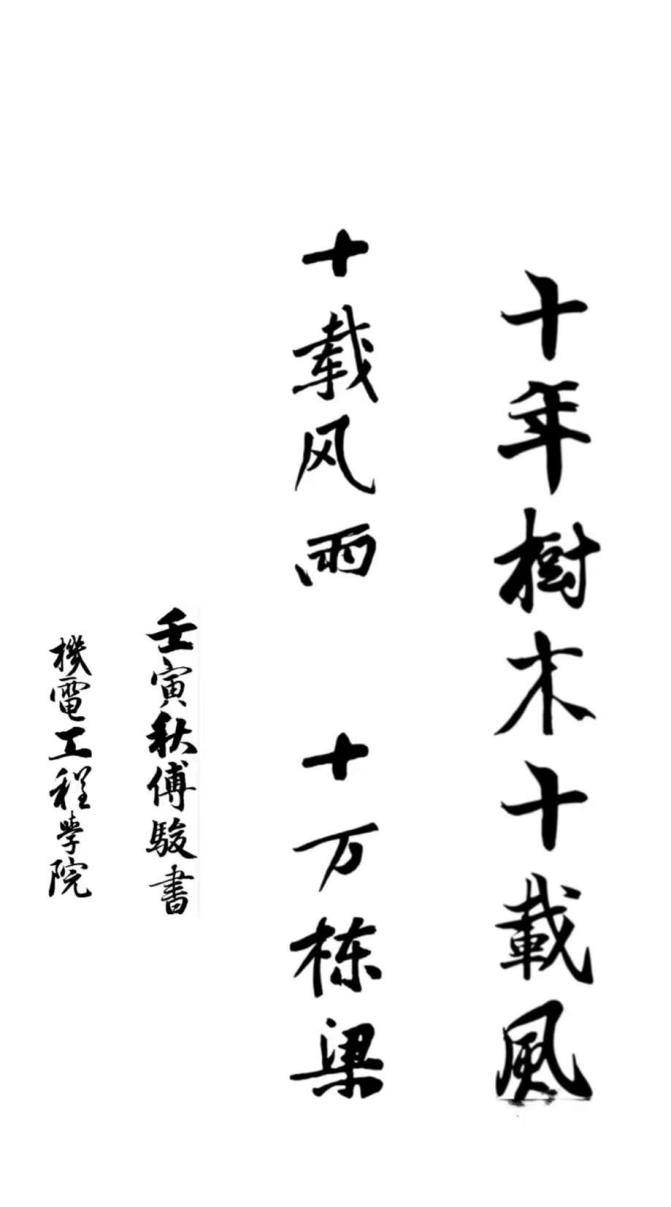 十年樹木十載風
十载风雨 十万栋梁
壬寅秋傅駿書
機電工程學院